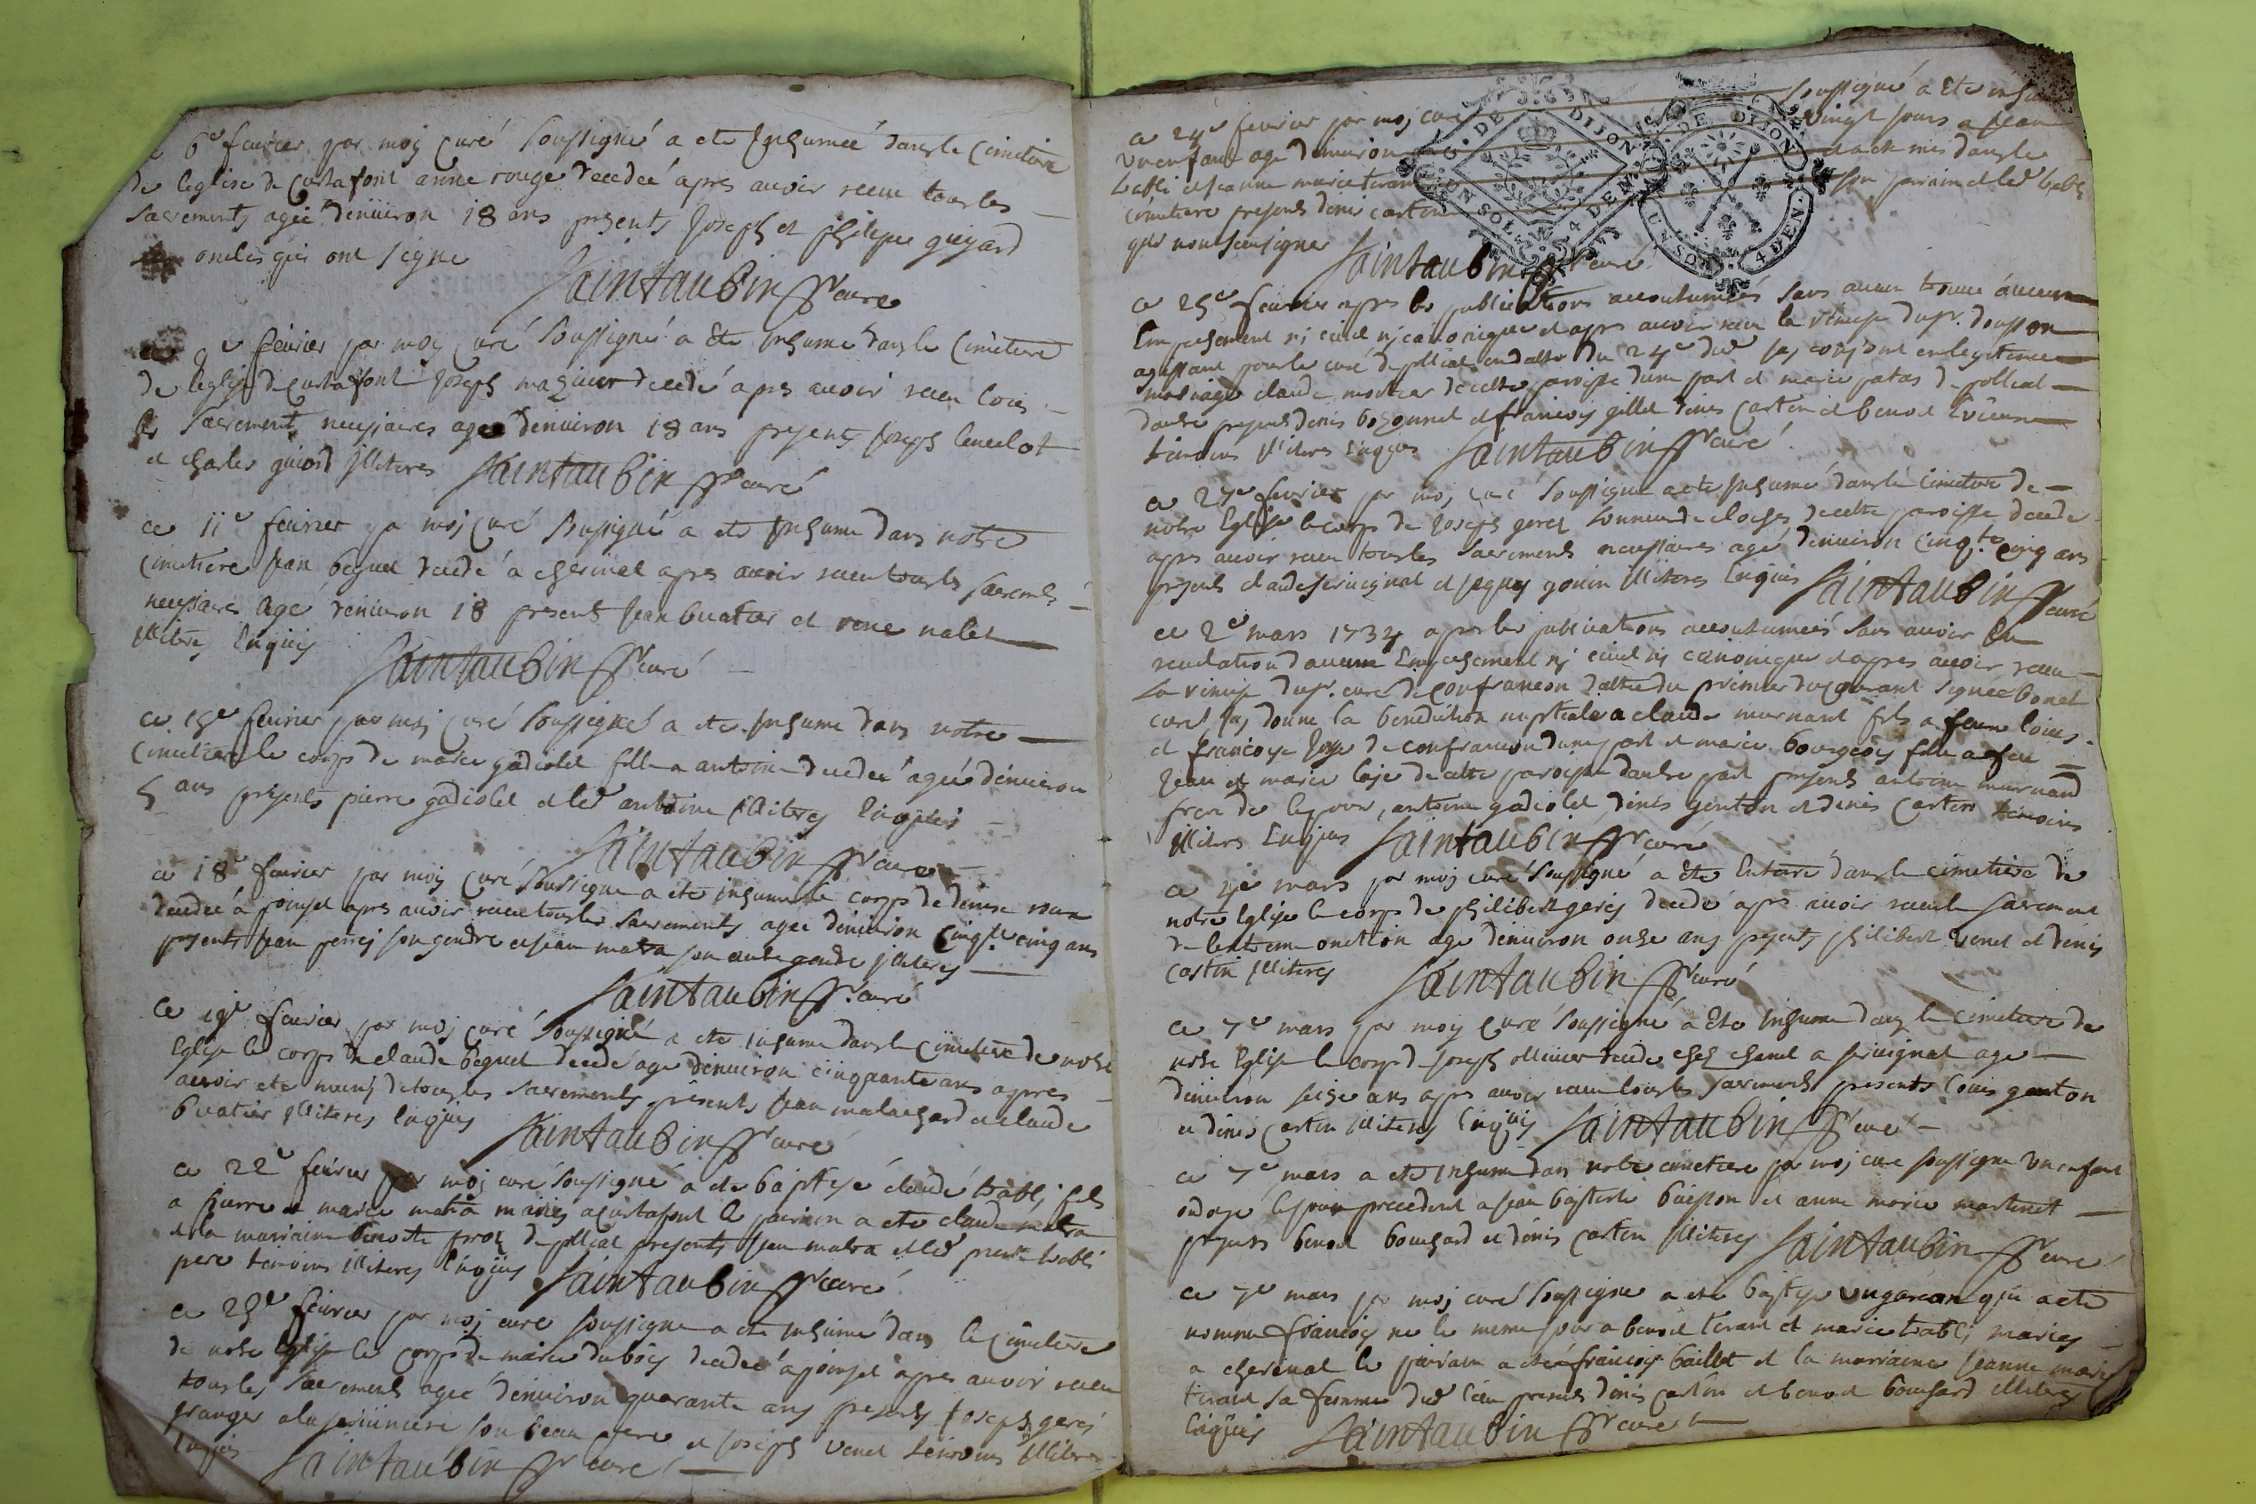 6e fevrier par moy curé soussigné a ete inhumée dans le cimetiere
de leglise de curtafont anne rouge decedeé apres avoir receu tous les
sacrements ageé denviron 18 ans presents joseph et philipe guigard
oncles qui ont signe
Saintaubin ptr curé
ce 9e fevrier par moy curé soussigné a ete inhumé dans le cimetiere
de leglise de curtafont joseph mazuier decedé apres avoir receu tous
les sacrements necessaires age denviron 18 ans presents joseph lancelot
et charles guiard illiteres Saintaubin ptr curé
ce 11e fevrier par moj curé soussigné a ete inhume dans notre
cimetiere jean beguet decedé a cherinal apres avoir receu tous les sacrements
necessaires agé denviron 18 presents jean buatier et rene nalet
illiteres enquis Saintaubin ptr curé
ce 15e fevrier par moj curé soussigné a ete inhume dans notre
cimetiere le corps de marie gadiolet fille a antoine decedeé ageé denviron
5 ans presents pierre gadiolet et led antoine illiteres enquis
Saintaubin ptr curé
ce 18e fevrier par moy curé soussigne a ete inhumé le corps de denise
decedeé a ponjet apres avoir receu tous les sacrements ageé denviron cinqte cinq ans
presents jean perrej son gendre et jean matra son autre gendre illiteres
Saintaubin ptr curé
ce 19e fevrier par moj curé soussigné a ete inhume dans le cimetiere de notre
Eglise le corps de claude beguet decedé age denviron cinquante ans apres
avoir ete munj de tous les sacrements presents jean malachard et claude
buatier illiteres enquis Saintaubin ptr curé
ce 22e fevrier par moj curé soussigné a ete baptisé claude trablj fils
a pierre et marie matra mariés a curtafont le parrain a ete claude matra
et la marraine benoite proz de polliat presents jean matra et led pierre trabli
pere temoins illiteres enquis Saintaubin ptr curé
ce 23e fevrier par moj curé soussigne a ete inhumé dans le cimetiere
de notre eglise le corps de marie dubois decedeé a ponjet apres avoir receu
tous les sacrements ageé denviron quarante ans presents joseph gerej
granger a la son beau pere et joseph venet temoins illiteres
enquis Saintaubin ptr curé
ce 24e fevrier par moj curé soussigné a ete inhumé
un enfant age denviron vingt jours a jean
trabli et jeanne marie tirant dans le
cimetiere presents denis cartin son parain et led trabli
qui nont sceu signer
Saintaubin ptr curé
G. DE DIJON UN SOL 4 DEN.
G. DE DIJON UN SOL 4 DEN.
ce 25e fevrier apres les publications accoutumeés sans avoir trouvé aucun
Empechement nj civil nj canonique et apres avoir receu la remise du sr. dousson
agissant pour le curé de polliat en datte du 24e dud jaj conjoint en legitime
mariage claude mortier de cette paroisse dune part et marie patas de polliat
dautre presents denis bozonnet et francois gillet denis cartin et benoit
temoins illiteres enquis Saintaubin ptr curé
ce 27e fevrier par moj curé soussigne a ete inhumé dans le cimetiere de
notre Eglise le corps de joseph gerej sonneur de cloches de cette paroisse decede
apres avoir receu tous les sacrements necessaires agé denviron cinqte cinq ans
presents claude servignat et jaques gonin illiteres enquis Saintaubin ptr curé
ce 2e mars 1734 apres les publications accoutumeés sans avoir Eu
revelation daucun Empechement nj civil nj canonique et apres avoir receu
la remise du sr. curé de confrancon dattee du premier du courant signée bonet
curé jaj donne la benediction nuptiale a claude murnant fils a feu louis
et francoise de confrancon dune part et marie bourgeois fille a feu
jean et marie loje de cette paroisse dautre part presents antoine murnand
frere de lepoux, antoine gadiolet, denis genton et denis cartin temoins
illiteres Enquis Saintaubin ptr curé
ce 4e mars par moj curé soussigné a ete Enterré dans le cimetiere de
notre Eglise le corps de philibert gerej decedé apres avoir receu le sacrement
de lextreme onction age denviron onze ans presents philibert venet et denis
cartin illiteres Saintaubin ptr curé
ce 7e mars par moy curé soussigné a ete inhume dans le cimetiere de
notre Eglise le corps de joseph ollivier decede chez chanel a servignat age
denviron seize ans apres avoir receu tous les sacrements presents louis genton
et denis cartin illiteres enquis Saintaubin ptr curé
ce 7e mars a ete inhume dans notre cimetiere par moj curé soussigne un enfant
ondoyé le jour precedent a jean baptiste buisson et anne marie martinet
presents benoit bouchard et denis cartin illiteres Saintaubin ptr curé
ce 7e mars par moj curé soussigne a ete baptisé un garcon qui a ete
nomme francois ne le meme jour a benoit tirant et marie trablj mariés
a cherinal le parrain a ete francois baillet et la marraine jeanne marie
tirant sa femme dud lieu presents denis cartin et benoit bouchard illiteres
enquis Saintaubin ptr curé